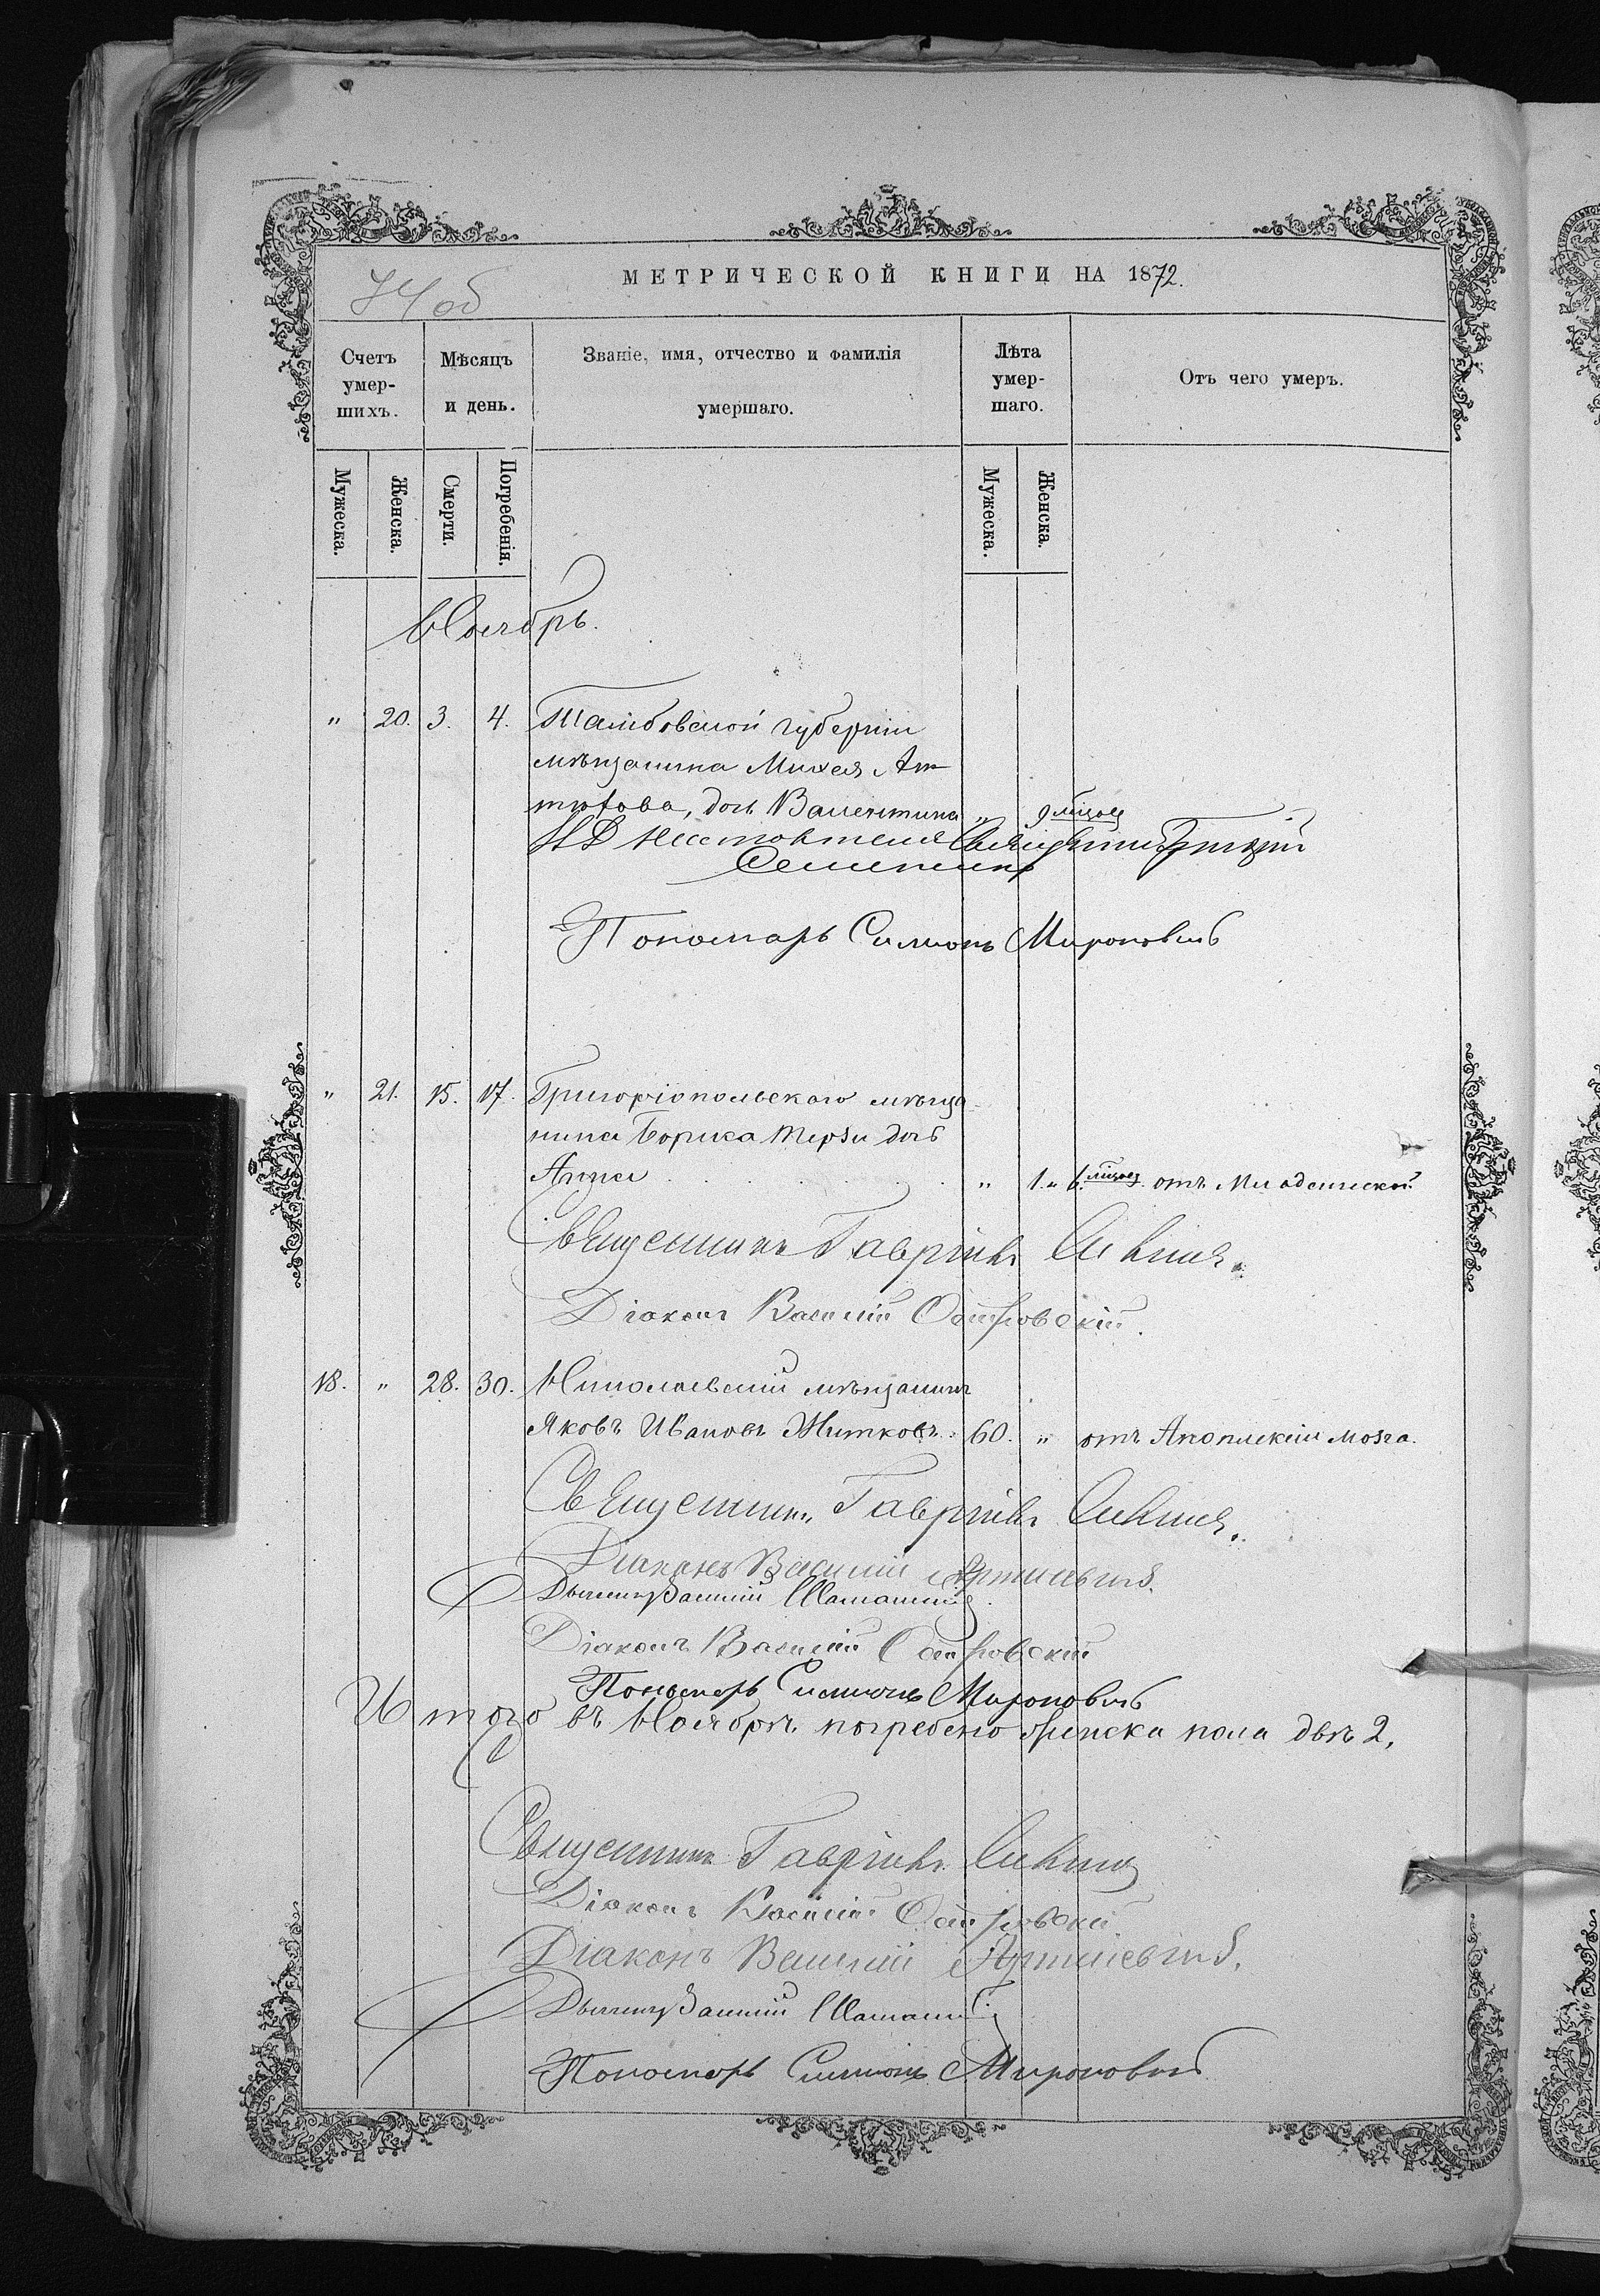 74 об
МЕТРИЧЕСКОЙ КНИГИ НА 1872.
Счетъ умер-шихъ.
Мѣсяцъ и день.
Званіе, имя, отчество и фамилія умершаго.
Лѣта умер-шаго.
Отъ чего умеръ.
Мужеска.
Женска.
Смерти.
Погребенія.
Мужеска.
Женска.
Ноябрь.
" 20. 3. 4. Тамбовской губерніи
мѣщанина Михея
дочь Валентина " 9 мѣсяц
Пономарь Симеонъ Мироновичъ
" 21. 15. 17. Григоріопольскаго мѣща
нина Бориса Терзи дочь
Анна " 1. " 6. мѣсяц. отъ Младенческой
Священникъ Гавріилъ
Діаконъ Василій Островскій.
18. " 28. 30. Николаевскій мѣщанинъ
Яковъ Ивановъ Житковъ. 60. " отъ Апоплексіи мозга.
Священникъ Гавріилъ
Діаконъ Василій
Дьячекъ Василій
Діаконъ Василій Островскій
Пономарь Симеонъ Мироновичъ
Итого въ Ноябрѣ погребено женска пола двѣ 2.
Священникъ Гавріилъ
Діаконъ Василій Островскій
Діаконъ Василій
Дьячекъ Василій
Пономарь Симеонъ Мироновичъ